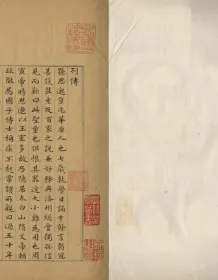 列傳
孫思邈京兆華原人也七歲就學日誦千餘言弱冠
善談莊老及百家之說兼好釋典洛州總管獨孤信
見而歎曰此聖童也但恨其器大適小難為用也周
宣帝時思邈以王室多故乃隱居太白山隋文帝輔
政徵為國子博士稱疾不起嘗謂所親曰過五十年